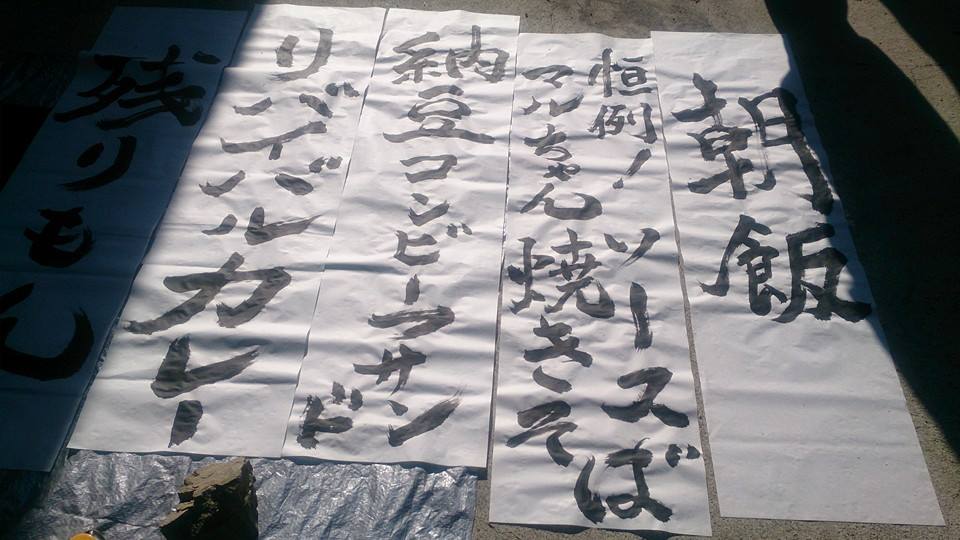 朝飯
恒例!ソースば
マルちゃん焼きそ
納豆コンビーフサンド
リバイバルカレー
残りもん